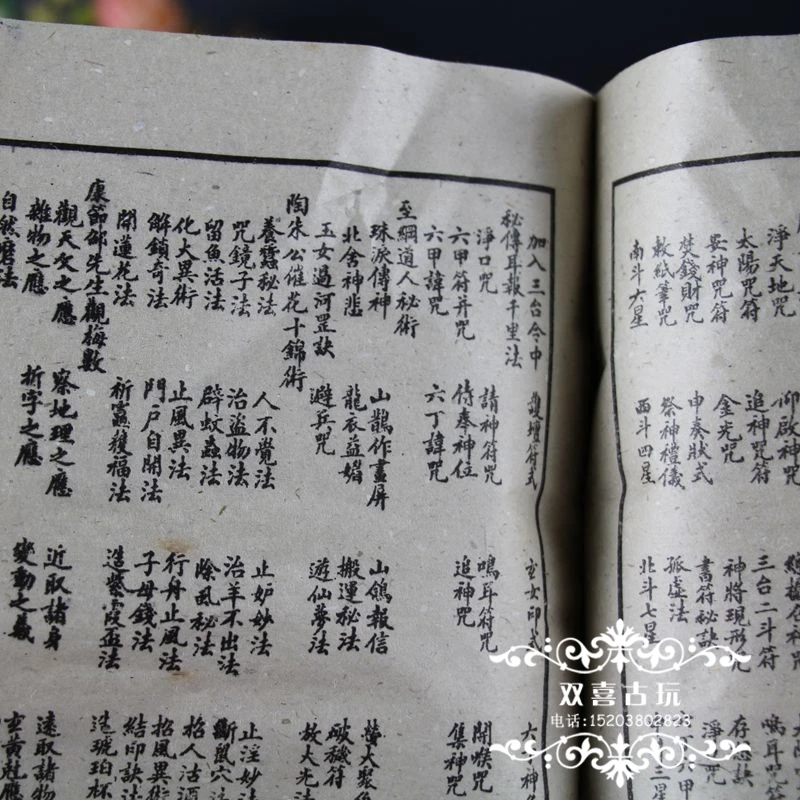 淨天地咒 仰啟神咒
太陽咒符 追神咒符 三台二斗符 鳴耳咒
安神咒符 金光咒 神將現形咒
焚錢財咒 申奏狀式 書符秘訣
敕紙筆咒 祭神禮儀 孤虛法 六甲
南斗六星 西斗四星 北斗七星 三星
加入三台令中 護壇符式 玄女印式
秘傳耳報千里法
淨口咒 請神符咒 鳴耳符咒 開喉咒
六甲符并咒 侍奉神位 追神咒 集神咒
六甲諱咒 六丁諱咒
至綱道人秘術
珠淚傳神 山鵲作畫屏 山鴿報信
北舍神悲 龍衣益媚 搬運秘法 破穢符
玉女過河罡訣 避兵咒 遊仙夢法 放大光法
陶朱公催花十錦術
養蠶秘法 人不覺法 止妒妙法 止淫妙法
咒鏡子法 治盜物法 治羊不出法 斷鼠穴法
留魚活法 辟蚊蟲法 除虱秘法 招人沽酒
化大異術 止風異法 行舟止風法 招風異術
解鎖奇法 門戶自開法 子母錢法 結印訣法
開蓮花法 祈靈獲福法 造紫霞盃法 造琥珀杯
康節邵先生觀梅數
觀天文之應 察地理之應 近取諸身 遠取諸物
雜物之應 折字之應 變動之義 玄黃剋應
自然磨法
双喜古玩
电话:15203802823